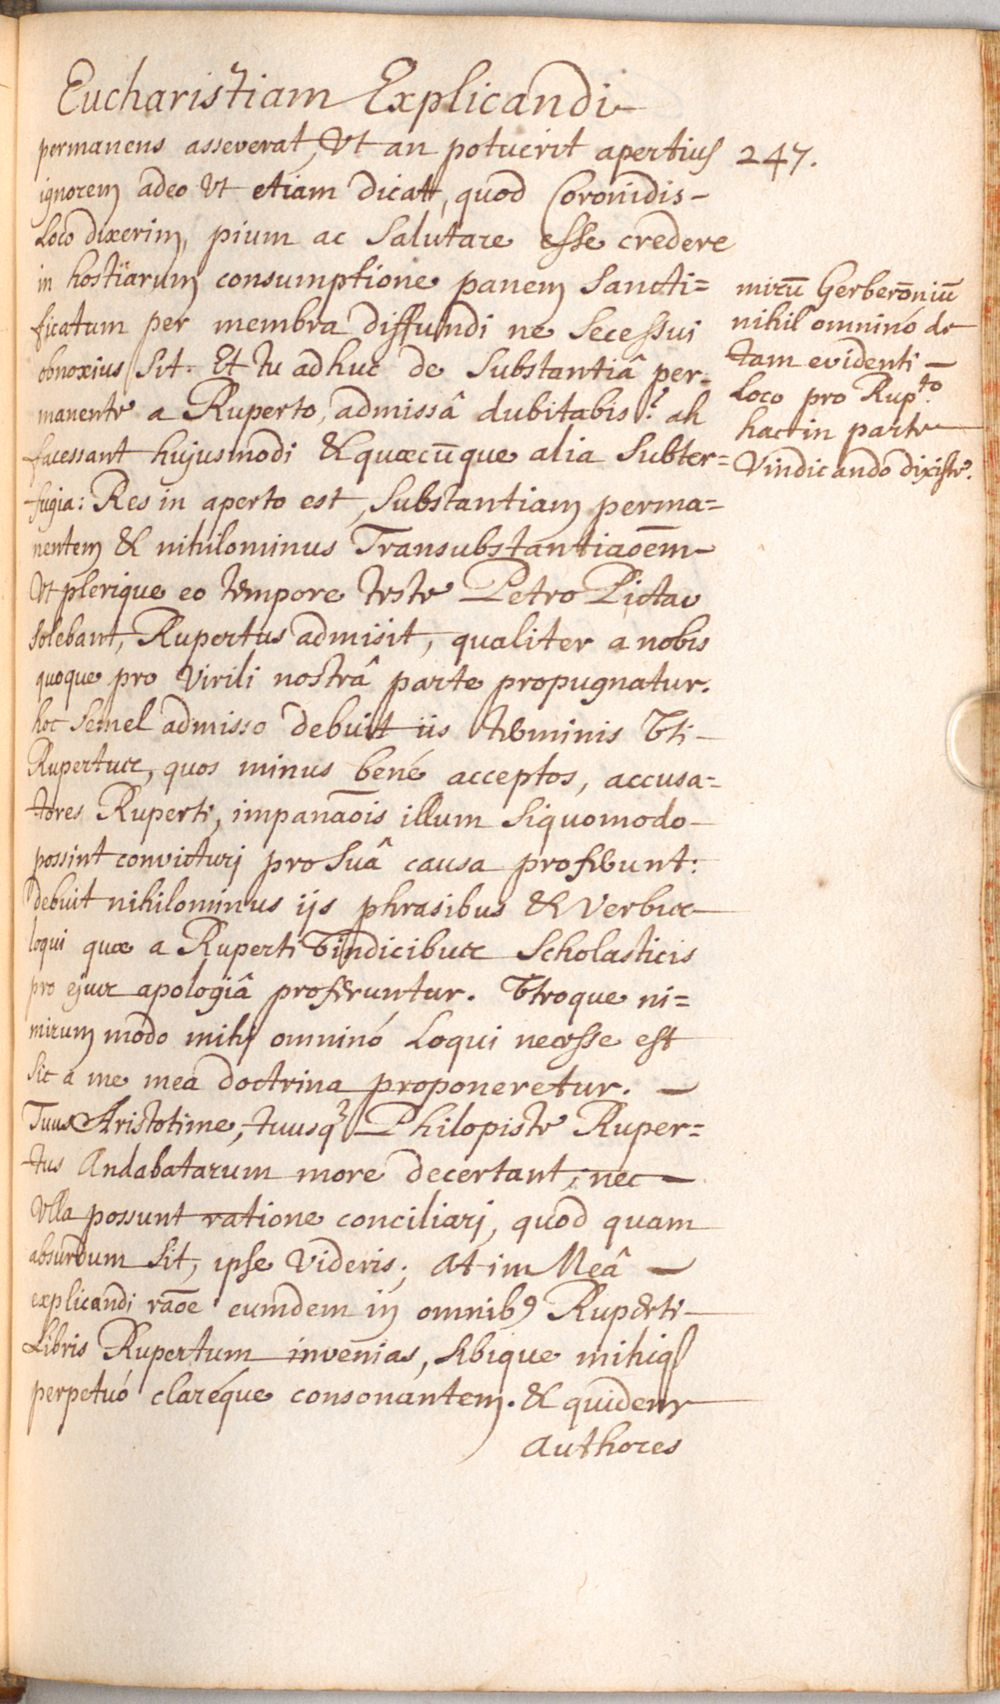 Eucharistiam Explicandi
permanens asseverat, Vt an potuerit apertius
247.
ignorem adeo Vt etiam dicatt, quod Coronidis
Loco dixerim, pium ac Salutare esse credere
in hostiarum consumptione panem Sancti=
ficatum per membra diffundi ne Secessui
obnoxius Sit. Et tu adhuc de Substantiâ per-
manente a Ruperto, admissâ dubitabis? ah
facessant hujusmodi & quæcūque alia Subter=
fugia: Res in aperto est, Substantiam perma=
nentem & nihilominus Transubstantiaōem
Vt plerique eo tempore teste Petro Pictav
Solebant, Rupertus admisit, qualiter a nobis
quoque pro Virili nostrâ parte propugnatur.
hoc Semel admisso debuit iis terminis Vti
Rupertus, quos minus bené acceptos, accusa=
tores Ruperti, impanāois illum Siquomodo
possint convicturi pro Suâ causa proferunt:
debuit nihilominus ijs phrasibus & Verbis
loqui quæ a Ruperti Vindicibus Scholasticis
pro ejus apologiâ proferuntur. Vtroque ni=
mirum modo mihi omninó Loqui necesse est
Sic a me mea doctrina proponeretur.
Tuus Aristotime, tuusq3 Philopiste Ruper=
tus Andabatarum more decertant, nec
Vlla possunt ratione conciliari, quod quam
absurdum Sit, ipse Videris; At im Meâ
explicandi rāoe eumdem in omnib9 Ruperti
Libris Rupertum invenias, Sibique mihiq
perpetuó claréque consonantem. & quidem
Authores
mirū Gerberōniū
nihil omninó de
tam evidenti
Loco pro Rup.to
hac in parte
Vindicando dixisse.